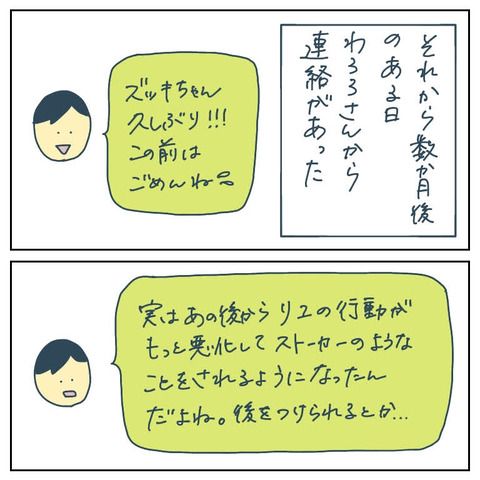 それから数か月後
のある日
わろろさんから
連絡があった
ズッキちゃん
久しぶり!!!
この前は
ごめんね
実はあの後からリユの行動が
もっと悪化してストーカーのような
ことをされるようになったん
だよね。後をつけられるとか…